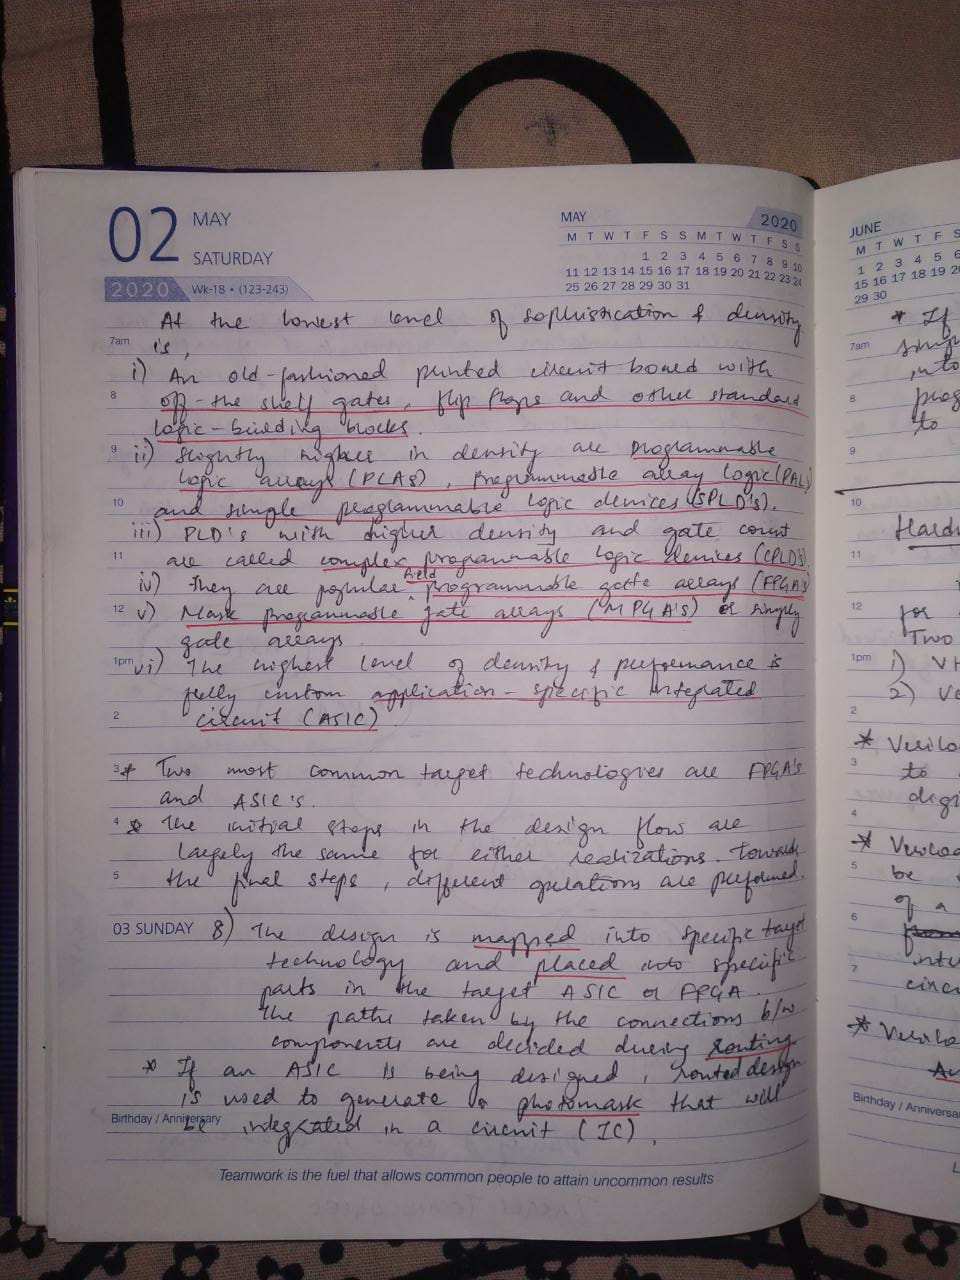 02 MAY
SATURDAY
2020 Wk-18 • (123-243)
MAY 2020
M T W T F S S M T W T F S S
1 2 3 4 5 6 7 8 9 10
11 12 13 14 15 16 17 18 19 20 21 22 23 24
25 26 27 28 29 30 31
At the lowest level of sophistication & density
7am is,
i) An old-fashioned printed circuit board with
8 off-the shelf gates, flip flops and other standard
logic-building blocks.
9 ii) Slightly higher in density are programmable
logic arrays (PLAs), Programmable array logic (PAL)
10 and simple programmable logic devices (SPLD's).
iii) PLD's with higher density and gate count
11 are called complex programmable logic devices (CPLD's)
iv) They are popular field programmable gate arrays (FPGA's)
12 v) Mask programmable gate arrays (MPGA's) or simply
gate arrays.
1pm vi) The highest level of density & performance is
fully custom application-specific integrated
2 circuit (ASIC).
3 * Two most common target technologies are FPGA's
and ASIC's.
4 * The initial steps in the design flow are
largely the same for either realizations. Towards
5 the final steps, different operations are performed.
03 SUNDAY 8) The design is mapped into specific target
technology and placed into specific
parts in the target ASIC or FPGA.
The paths taken by the connections b/w
components are decided during routing.
* If an ASIC is being designed, routed design
is used to generate a photomask that will
Birthday / Anniversary be integrated in a circuit (IC).
Teamwork is the fuel that allows common people to attain uncommon results
JUNE
M T W T F S
1 2 3 4 5 6
15 16 17 18 19 20
29 30
* If
7am
into
8
to
9
10
11
12 for
Two
1pm 1) VH
2) Ve
2
* Verilo
3 to
digi
4
* Verilo
5 be
of a
6
7
circu
* Verilo
Birthday / Anniversa